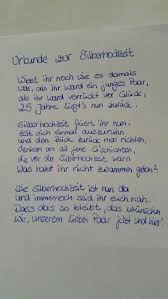 Urkunde zur Silberhochzeit
Wisst ihr noch wie es damals
war, als ihr ward ein junges Paar,
als ihr ward verrückt vor Glück,
25 Jahre liegt's nun zurück.
Silberhochzeit feiert ihr nun,
Zeit sich einmal auszuruhn
und den Blick zurück mal richten,
denken an all jene Geschichten,
die vor der Silberhochzeit warn
Was habt ihr nicht zusammen getan?
Die Silberhochzeit ist nun da
und immernoch seid ihr euch nah.
Dass das so bleibt, das wünschen
wir, unserem lieben Paar jetzt und hier.